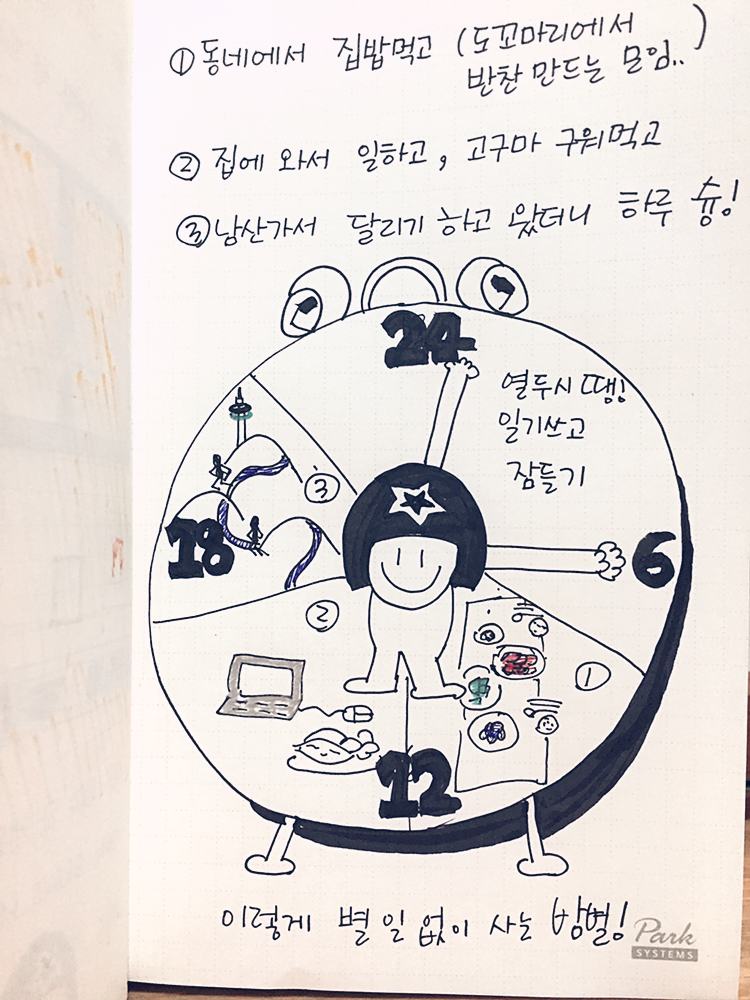 ① 동네에서 집밥먹고 (도꼬마리에서
반찬 만드는 모임..)
② 집에 와서 일하고, 고구마 구워먹고
③ 남산가서 달리기 하고 왔더니 하루 슝!
24
열두시 땡!
일기쓰고
잠들기
③
18
6
②
①
12
이렇게 별 일 없이 사는 방법!
Park
SYSTEMS